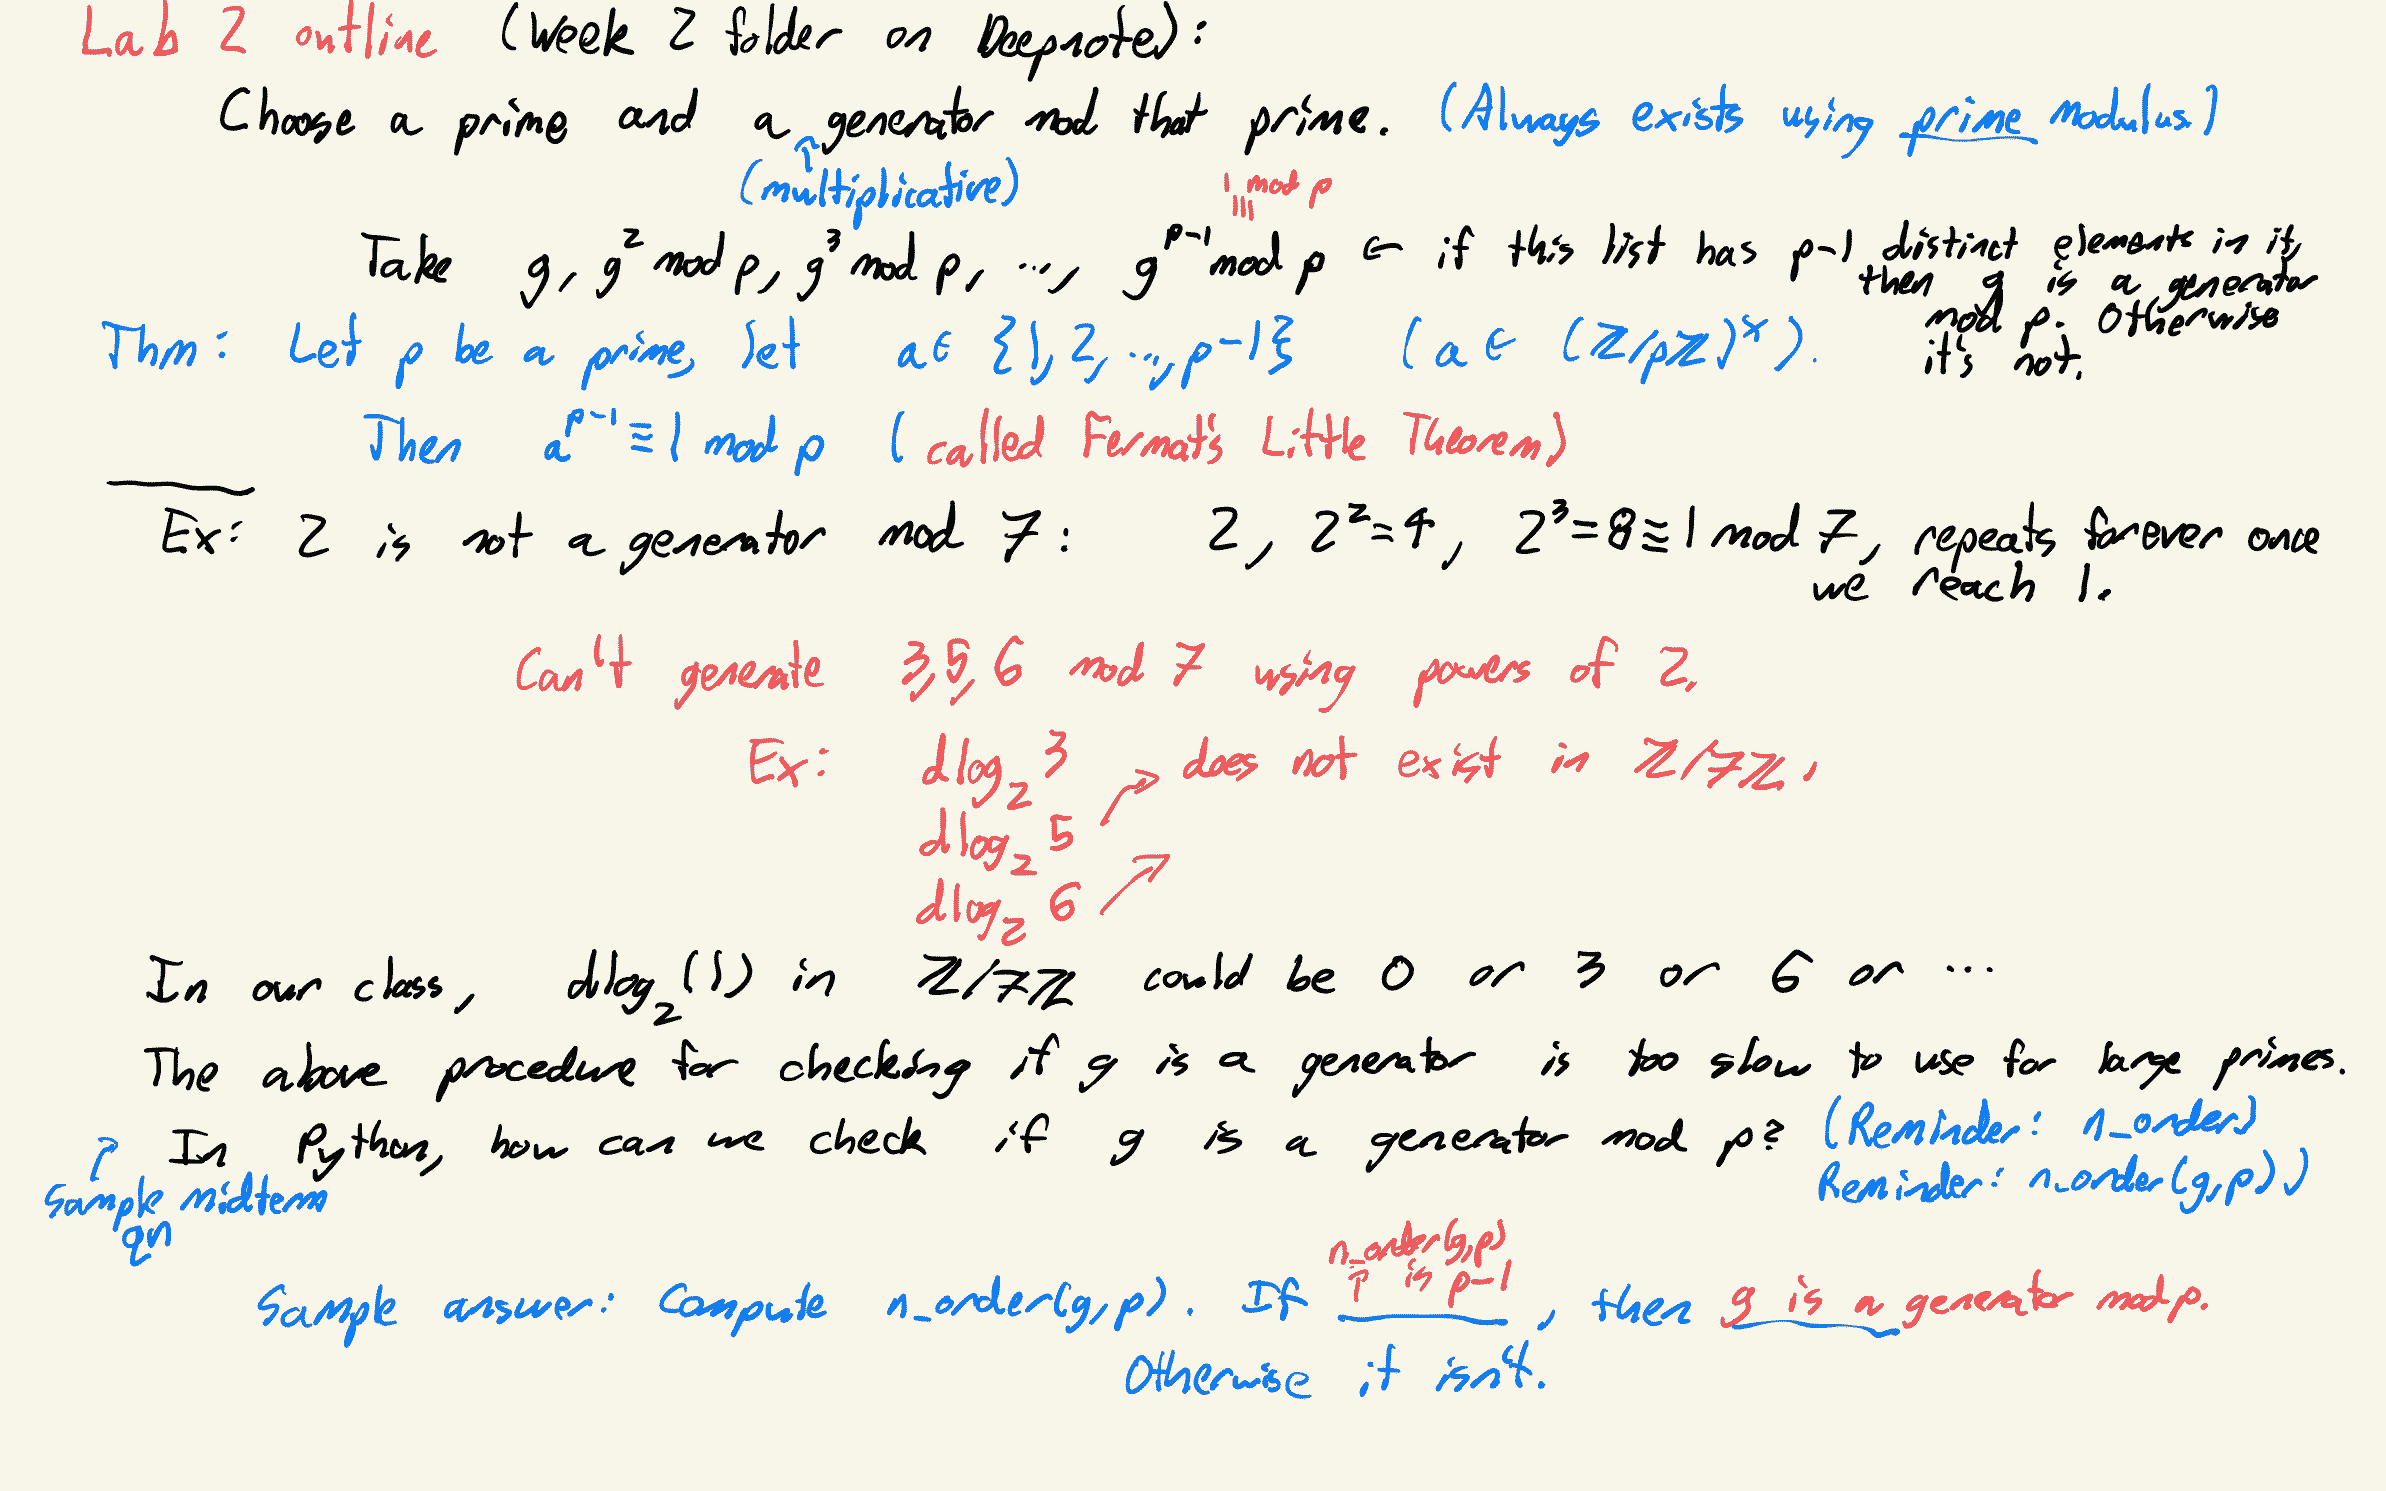 Lab 2 outline (Week 2 folder on Deepnote):
Choose a prime and a generator mod that prime. (Always exists using prime modulus.)
(multiplicative)
1 mod p
≡
Take g, g² mod p, g³ mod p, ..., g^{p-1} mod p ← if this list has p-1 distinct elements in it,
then g is a generator
mod p. Otherwise
it's not.
Thm: Let p be a prime, let a ∈ {1, 2, ..., p-1} (a ∈ (ℤ/pℤ)^×).
Then a^{p-1} ≡ 1 mod p (called Fermat's Little Theorem)
Ex: 2 is not a generator mod 7: 2, 2²=4, 2³=8≡1 mod 7, repeats forever once
we reach 1.
Can't generate 3,5,6 mod 7 using powers of 2.
Ex: dlog₂ 3 does not exist in ℤ/7ℤ.
dlog₂ 5 ↗
dlog₂ 6 ↗
In our class, dlog₂(1) in ℤ/7ℤ could be 0 or 3 or 6 or ...
The above procedure for checking if g is a generator is too slow to use for large primes.
In Python, how can we check if g is a generator mod p? (Reminder: n_order)
Reminder: n_order(g,p))
Sample midterm
qn
n_order(g,p)
↑ is p-1
Sample answer: Compute n_order(g,p). If ____, then g is a generator mod p.
Otherwise it isn't.